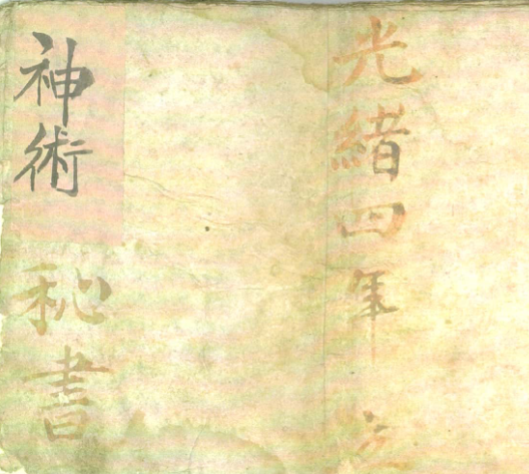 光緒四年
神術秘書